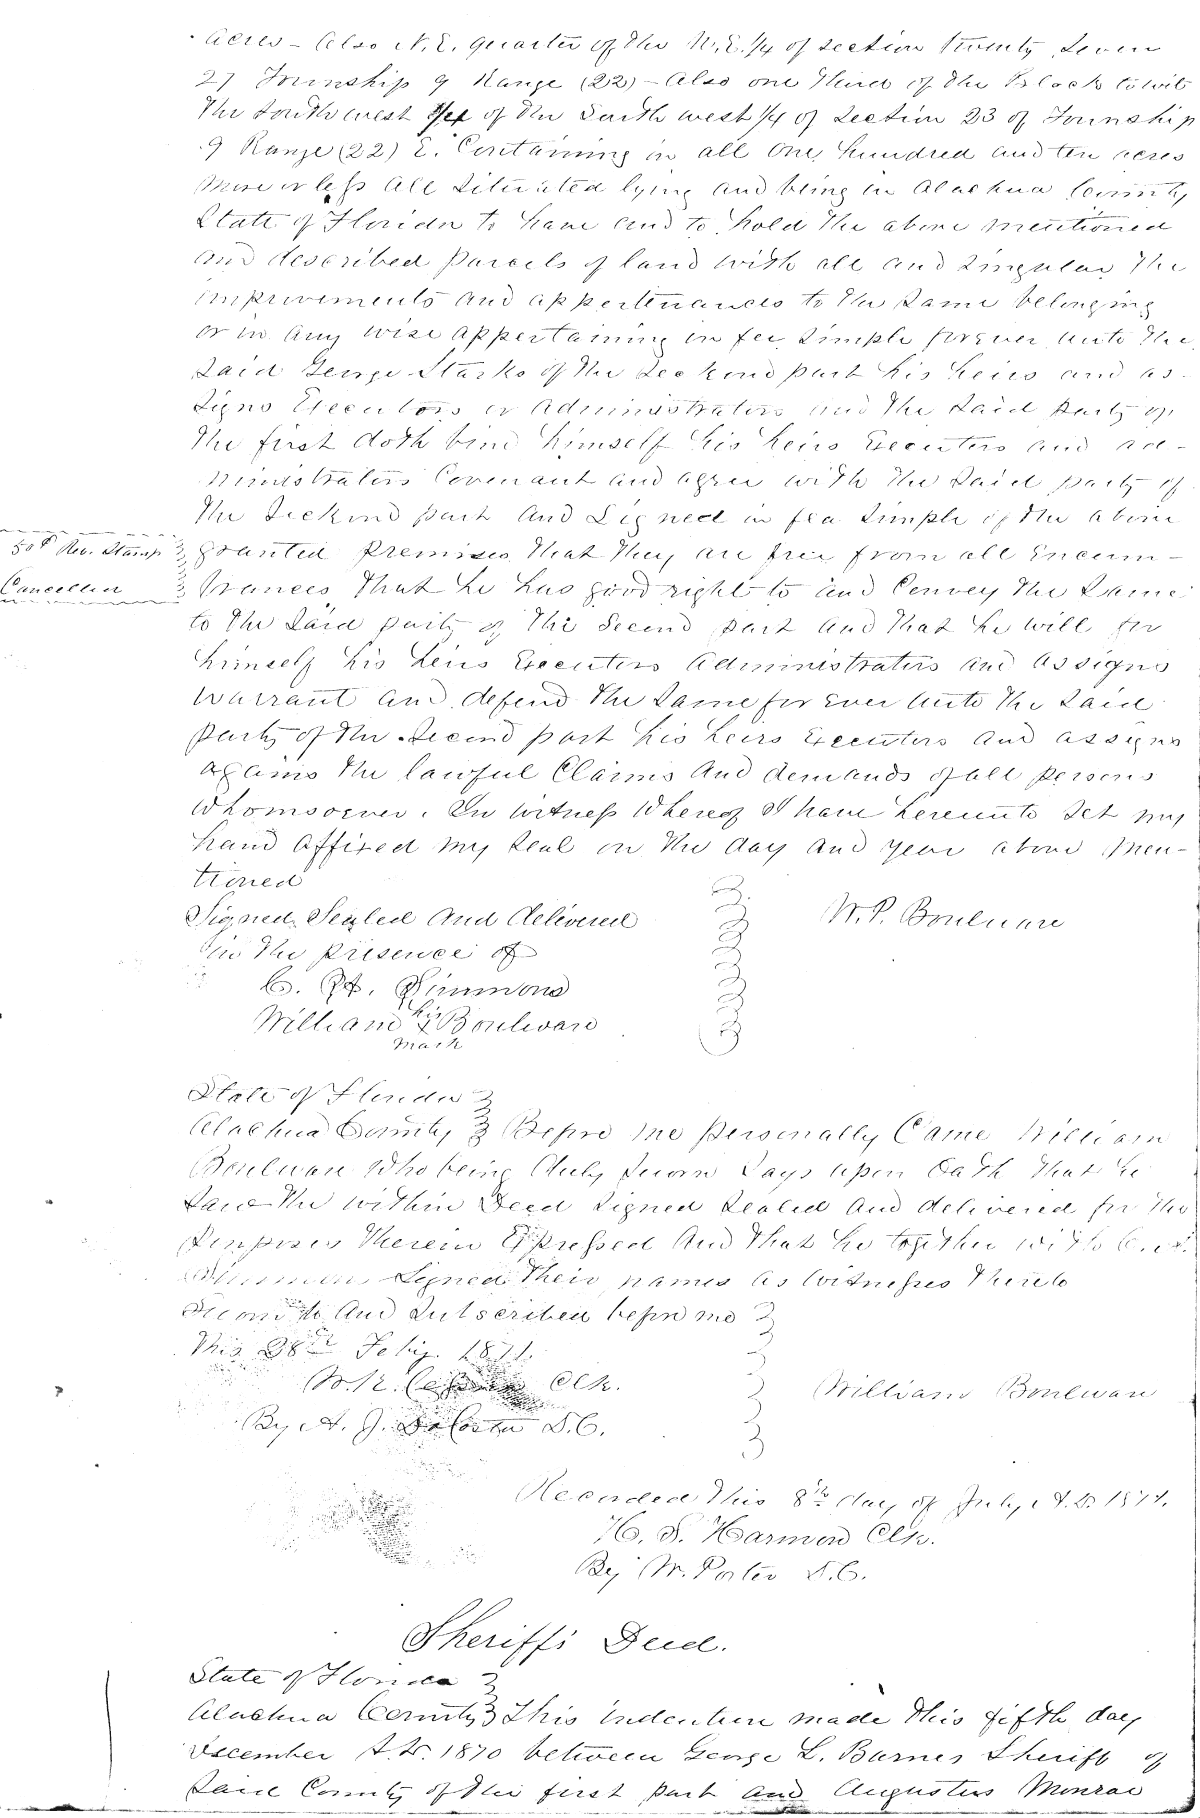 acres - Also N.E. quarter of the N.E. 1/4 of section twenty Seven
27 Township 9 Range (22) - Also one third of the Block towit
The South west of the South west 1/4 of Section 23 of Township
9 Range (22) E. Containing in all One hundred and ten acres
more or less all Situated lying and being in Alachua County
State of Florida to have and to hold the above mentioned
and described parcels of land with all and Singular the
improvements and appertenances to the same belonging
or in any wise appertaining in fee Simple forever unto the
Said George Starks of the Seckond part his heirs and as-
signs Executors or Administrators and the Said party of
the first doth bind himself his heirs Executors and ad-
ministrators Covenant and agree with the Said party of
the Seckond part and Signed in fea Simple of the above
50 cts Rev. Stamp
Cancelled
granted premises that they are free from all Encum-
brances that he has good right to and Convey the Same
to the Said party of the Second part and that he will for
himself his heirs Executors Administrators and assigns
Warrant and defend the Same for Ever unto the Said
party of the Second part his heirs Executors and assigns
agains the lawful Claims and demands of all persons
Whomsoever. In witness Whereof I have hereunto Set my
hand affixed my Seal on the day and year above Men-
tioned
Signed Sealed and delivered
W. P. Boulware
in the presence of
C. H. Simmons
William his X mark Boulware
State of Florida
Alachua County Before me personally Came William
Boulware Who being duly Sworn Says upon Oath that he
Saw the within Deed Signed Sealed and delivered for the
Purposes therein Expressed and that he together with C. H.
Simmons Signed their names as Witnesses thereto
Sworn to and Subscribed before me
this 28th Feby. 1871.
W. K. Clk.
William Boulware
By A. J. DaCosta D.C.
Recorded this 8th day of July A.D. 1871.
H. S. Harmon Clk.
By W. Porter D.C.
Sheriffs Deed.
State of Florida
Alachua County This indenture made this fifth day
December A.D. 1870 between George L. Barnes Sheriff of
Said County of the first part and Augustus Monroe